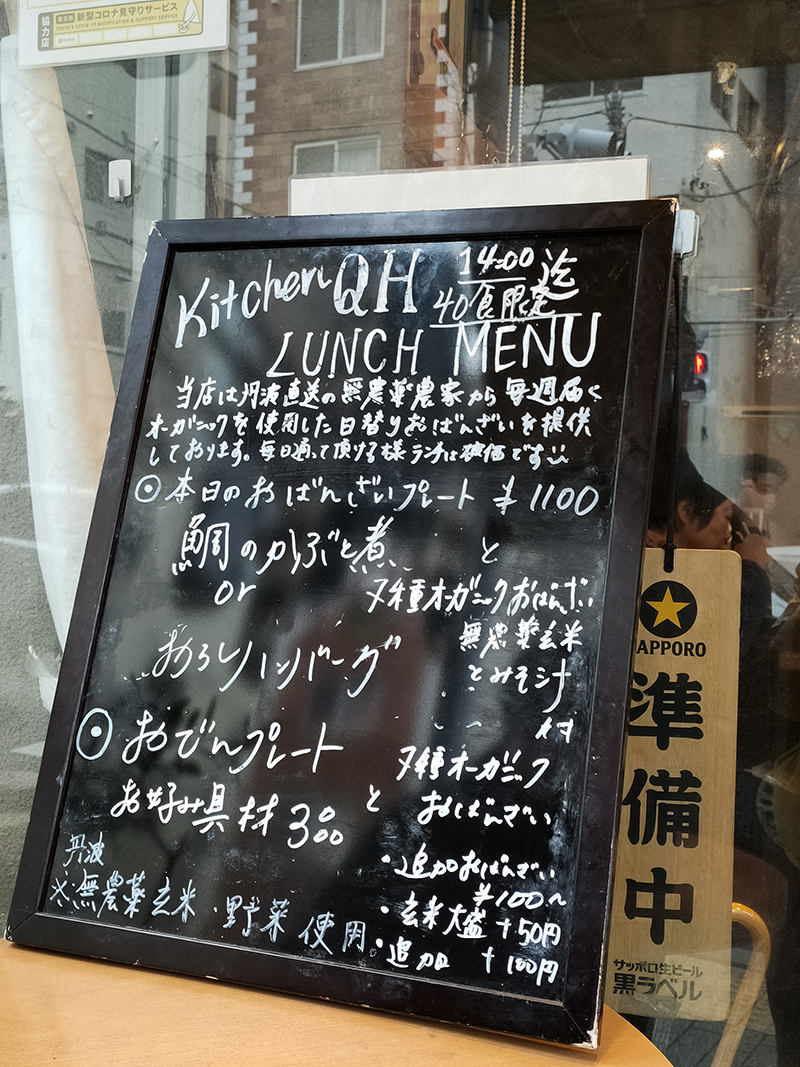 協力店
東京都 新型コロナ見守りサービス
TOKYO'S COVID-19 NOTIFICATION & SUPPORT SERVICE
Kitchen QH
14:00迄
40食限定
LUNCH MENU
当店は丹波直送の無農薬農家から毎週届く
オーガニックを使用した日替りおばんざいを提供
しております。毎日通って頂ける様ランチは破価です
◎本日のおばんざいプレート ¥1100
鯛のかぶと煮
or
おろしハンバーグ
と
7種オーガニックおばんざい
無農薬玄米
とみそ汁
付
◎おでんプレート
お好み具材3コ
と
7種オーガニック
おばんざい
丹波
※無農薬玄米・野菜使用
・追加おばんざい
¥100〜
・玄米大盛+50円
・追加 +100円
SAPPORO
準備中
サッポロ生ビール
黒ラベル